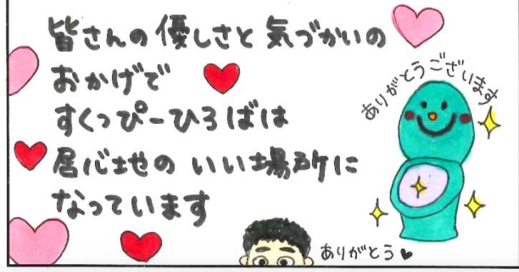 皆さんの優しさと気づかいの
おかげで
すくっぴーひろばは
居心地のいい場所に
なっています
ありがとうございます
ありがとう♥